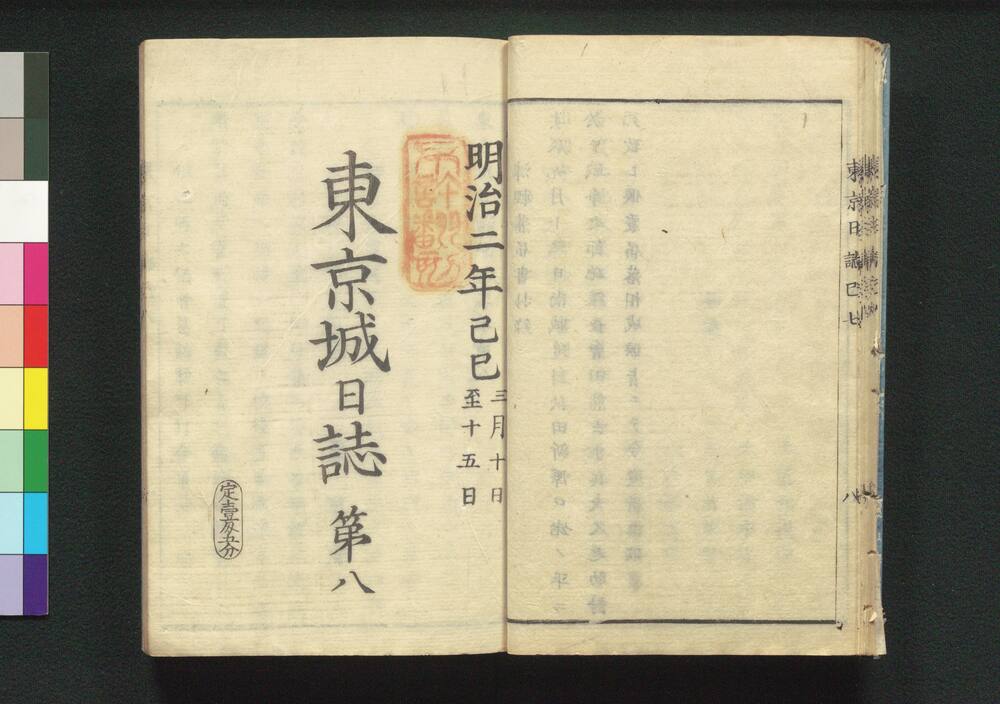 東京日誌己七
八
明治二年己巳
三月十日
至十五日
東京城日誌 第八
定壹匁五分